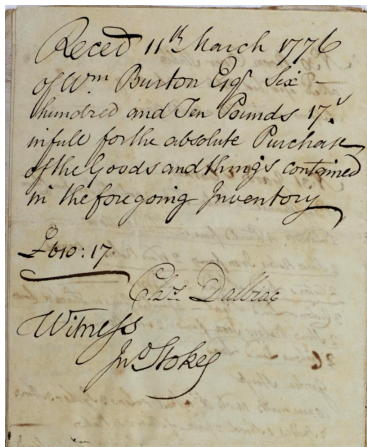 Reced 11th March 1776
of Wm Burton Esqr Six
hundred and Ten Pounds 17s
in full for the absolute Purchase
of the Goods and things contained
in the foregoing Inventory
£610:17
Chas Dalbiac
Witness
Jno Stokes